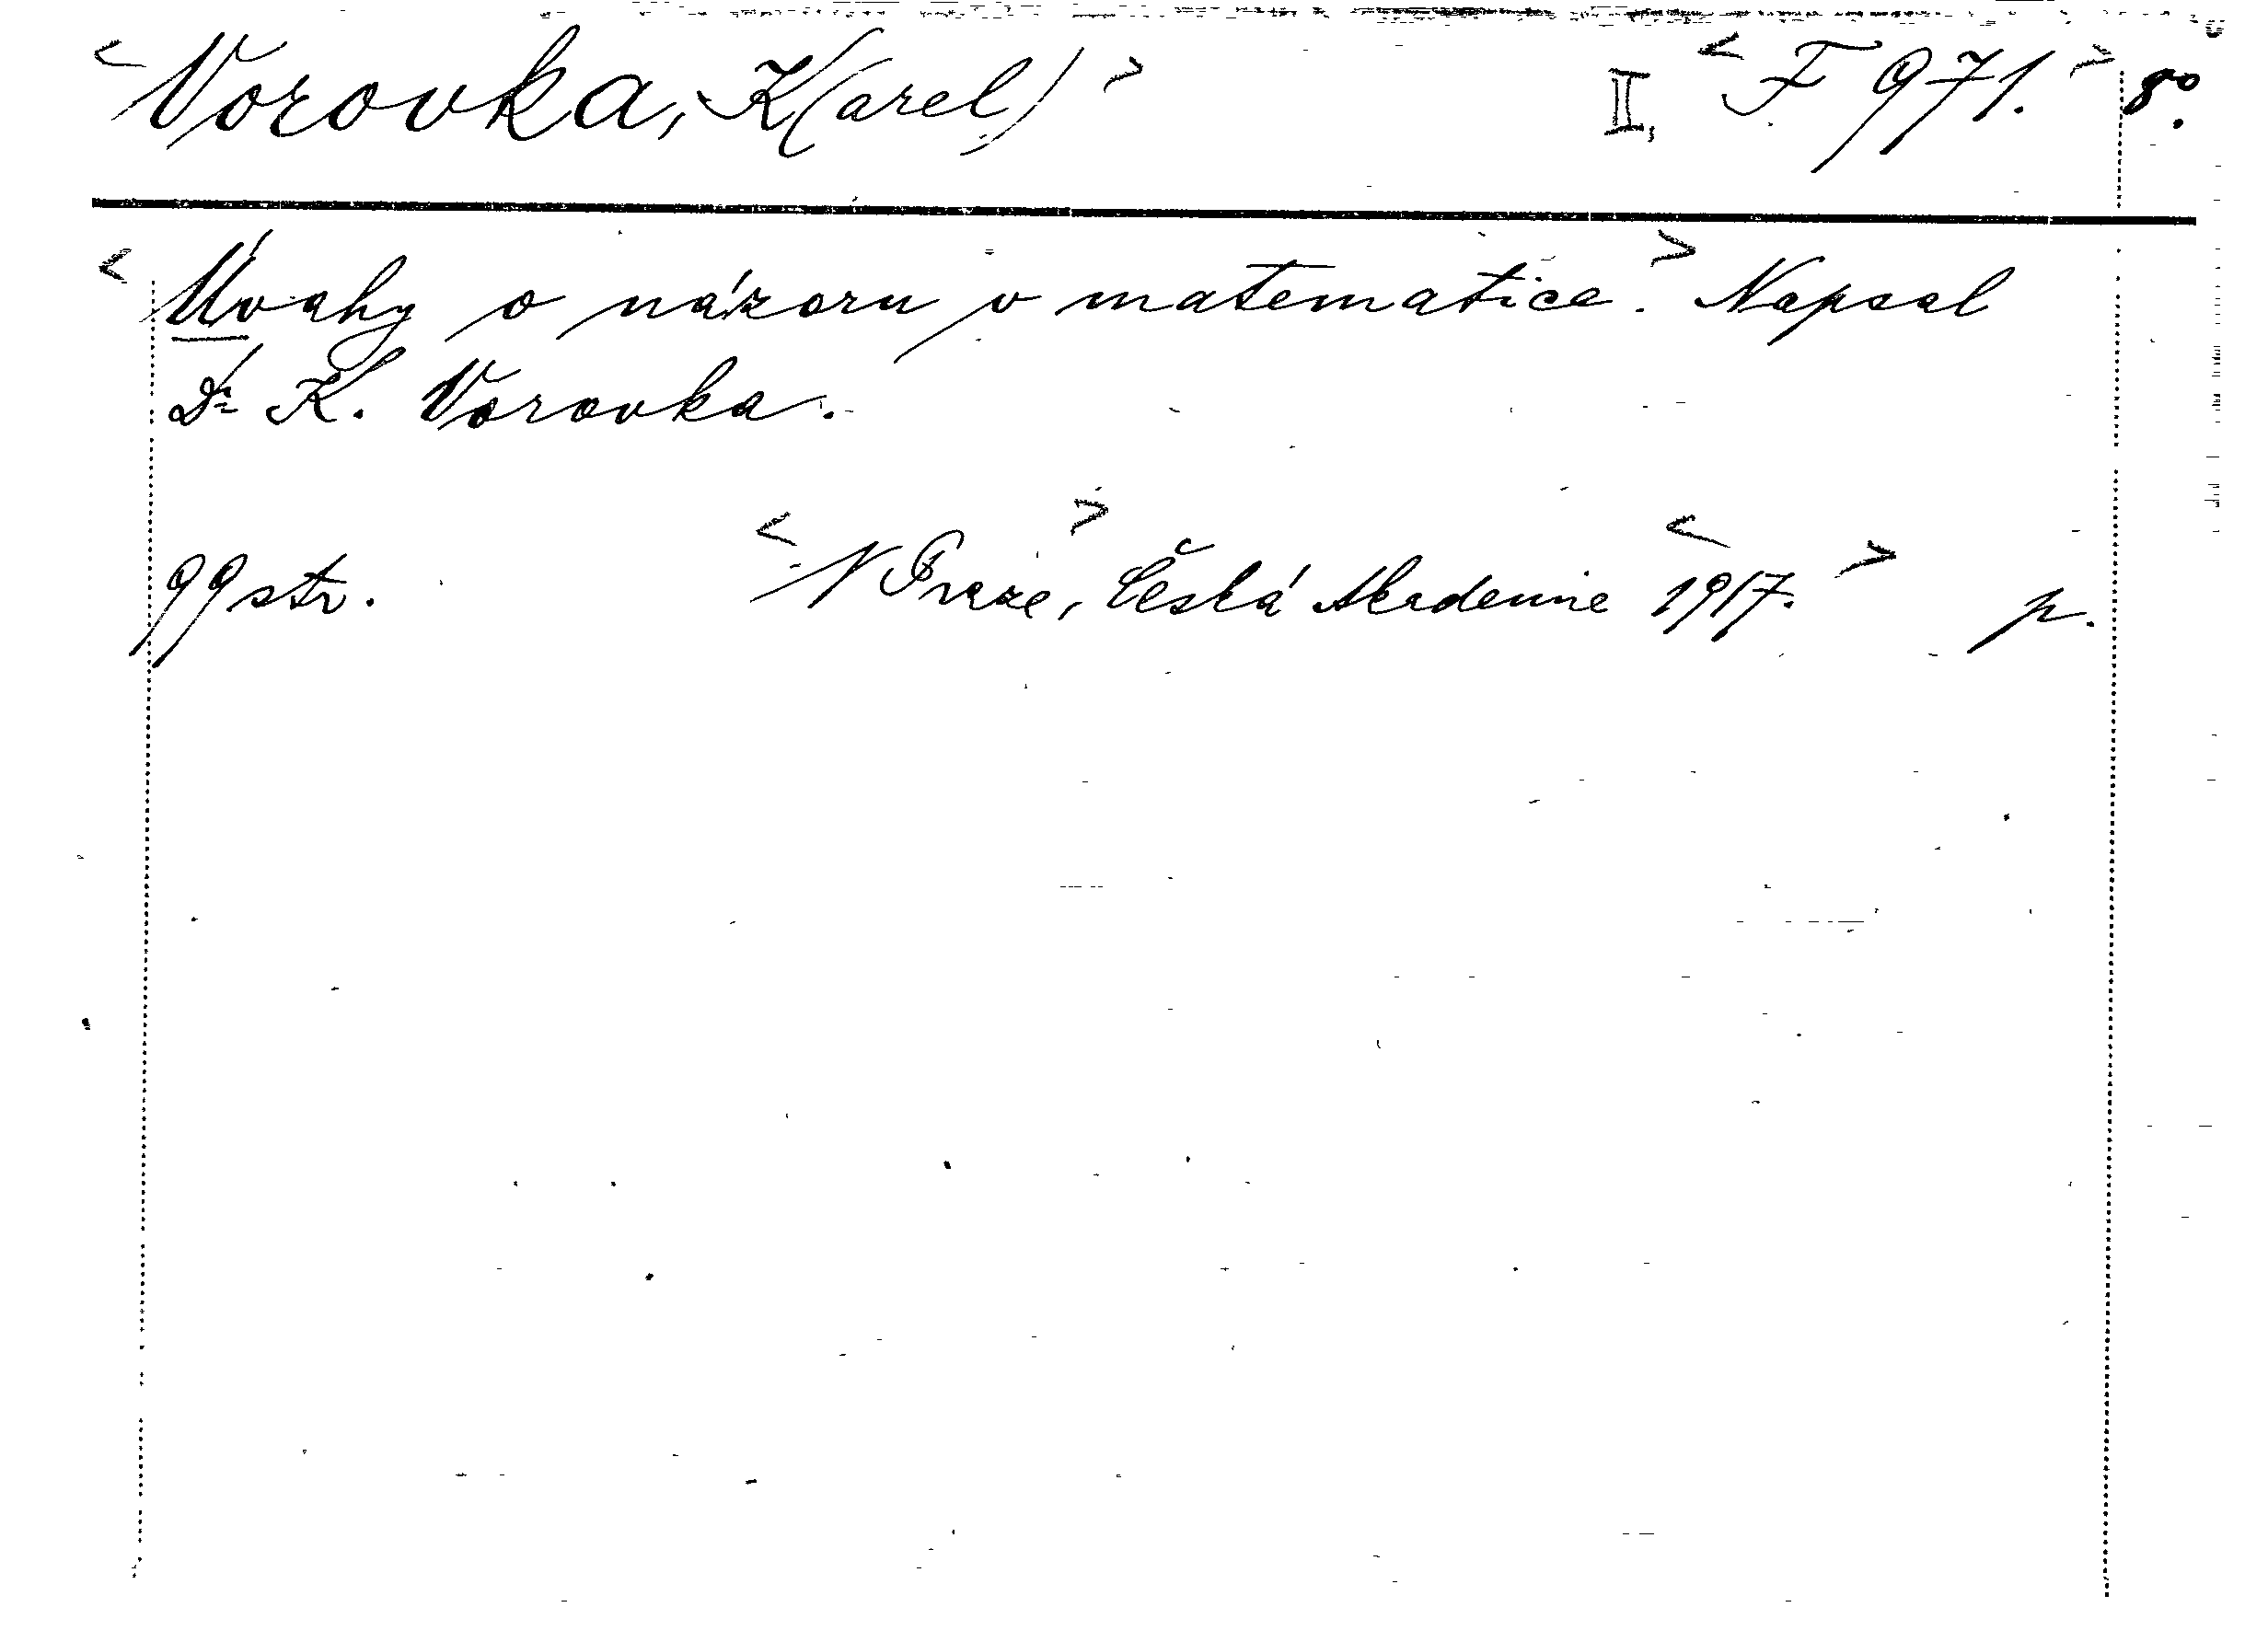 <Vorovka, K(arel)> II, <F 971.> 8°.
<Úvahy o názoru v matematice.> Napsal
Dr K. Vorovka.
99 str. <V Praze,> Česká Akademie <1917.> p.